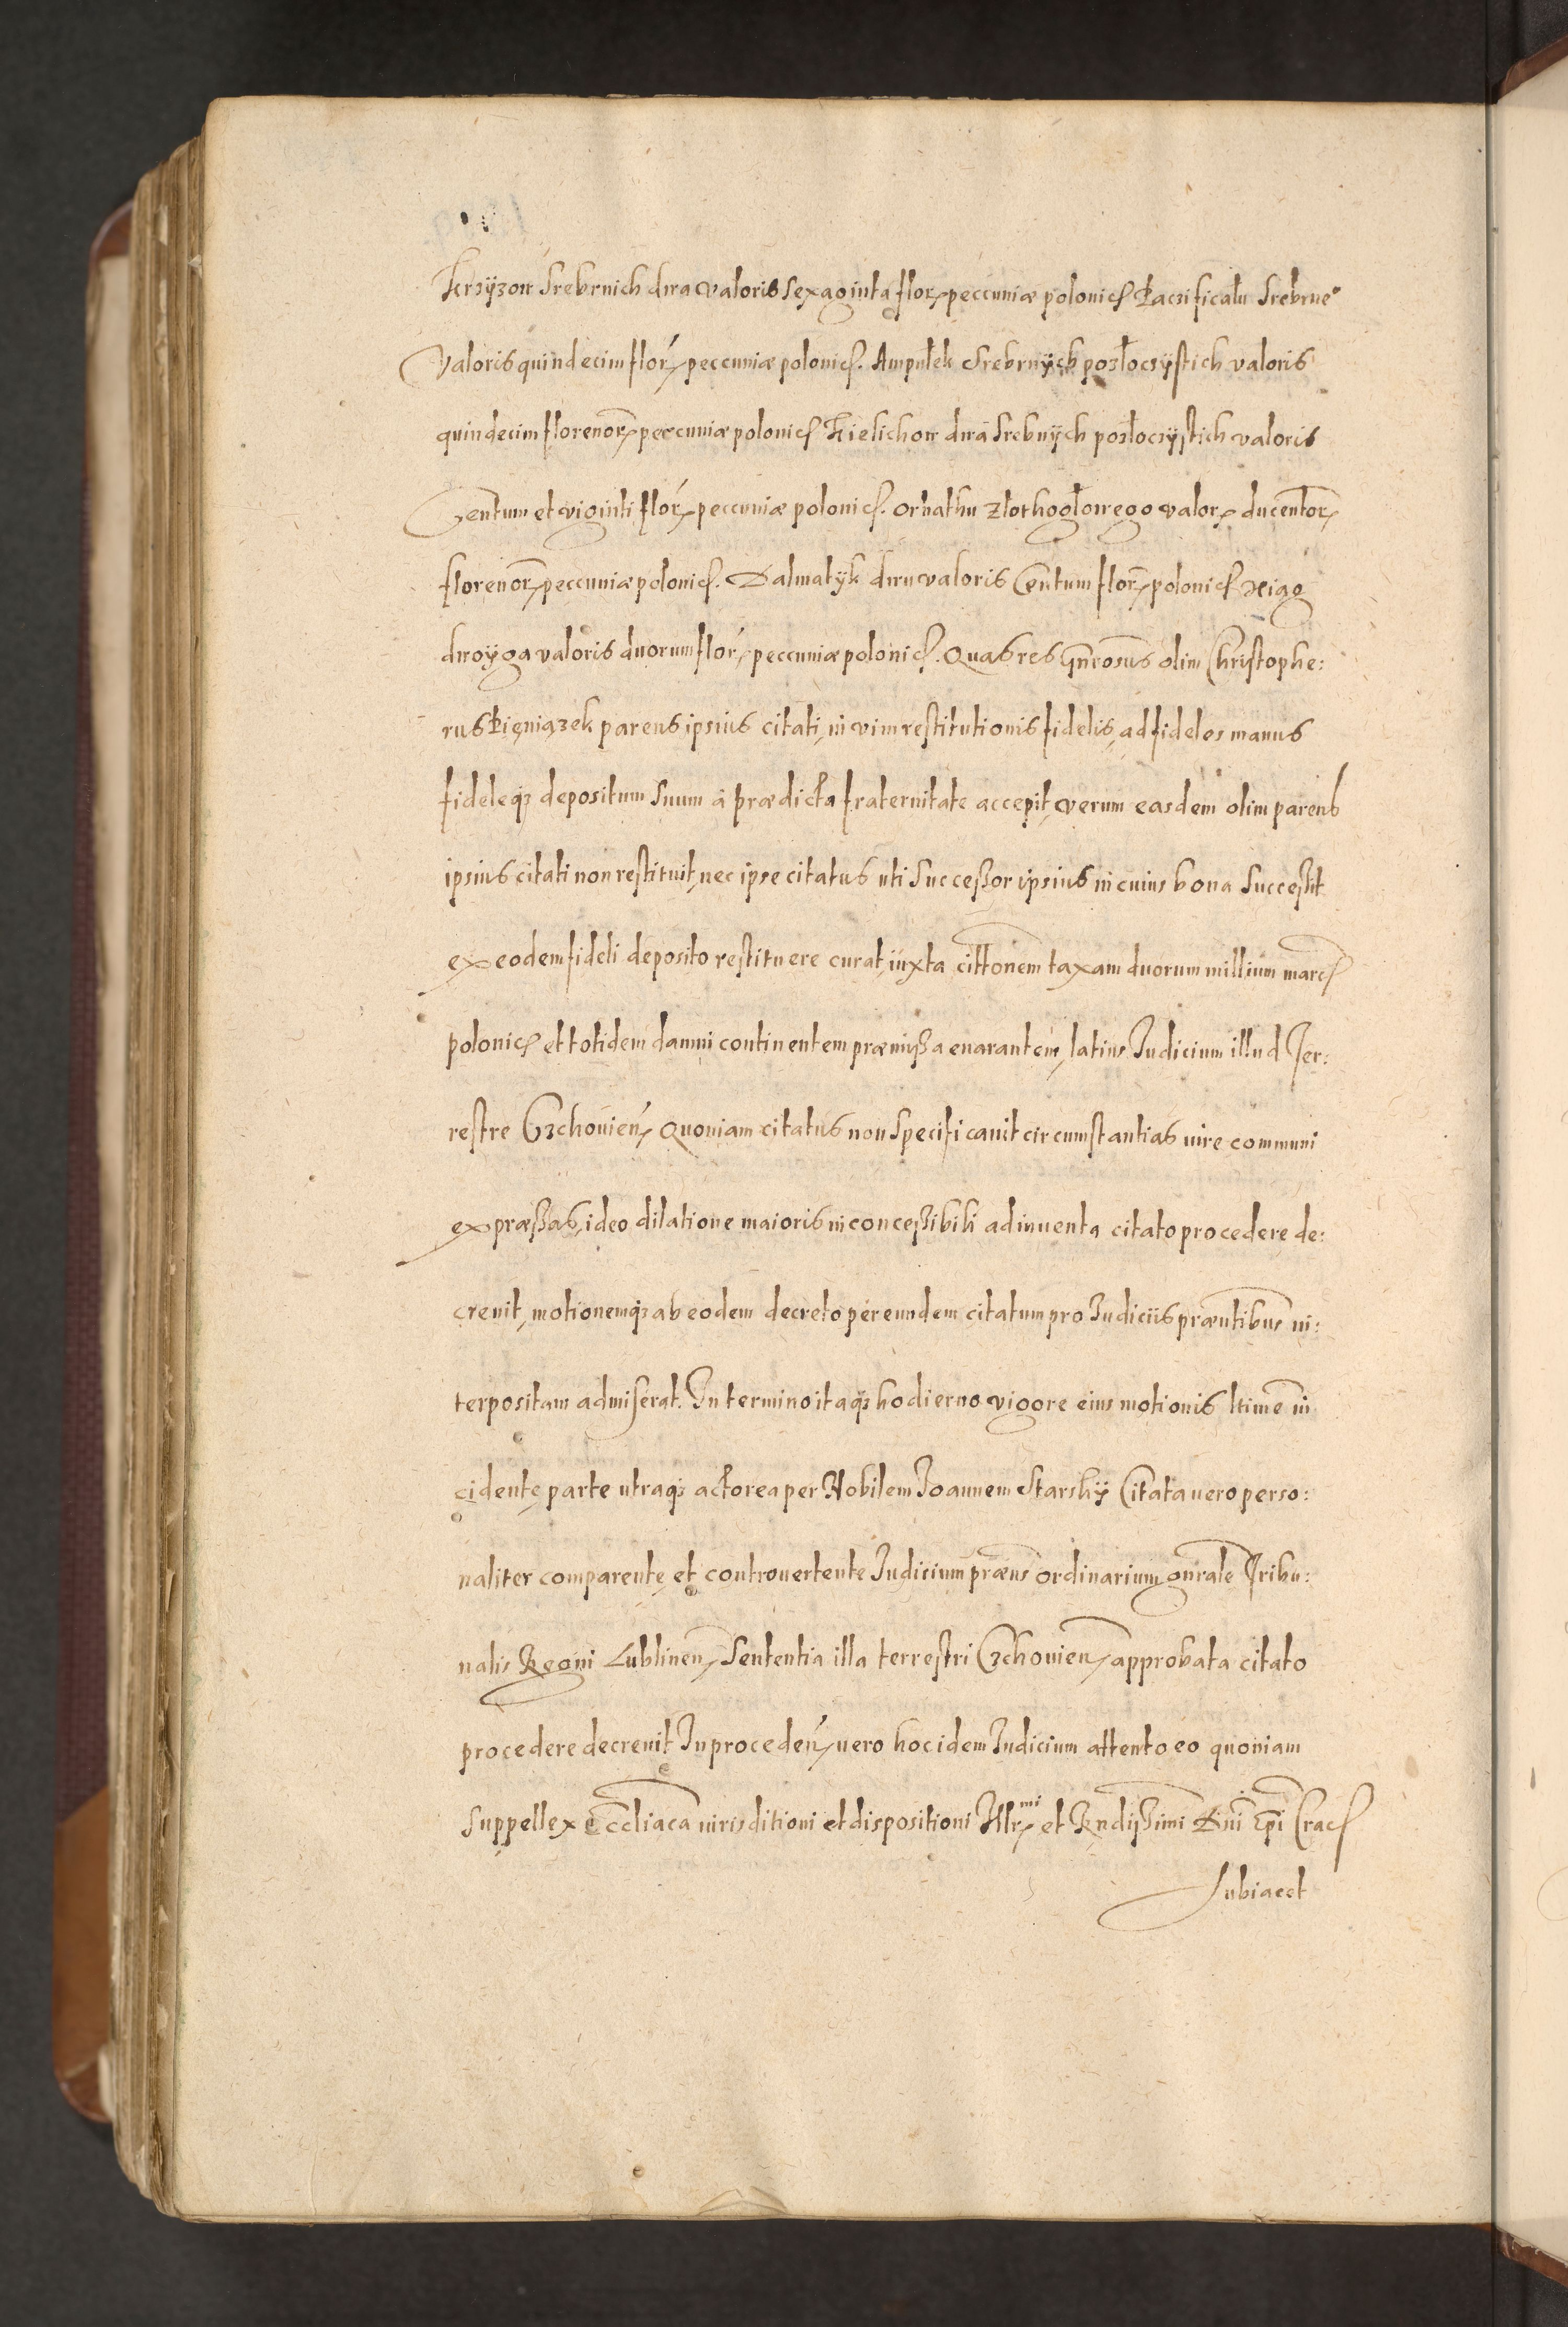 Krzÿzow Srebrnich dwa valoris sexaginta florꝝ peccuniæ polonicꝭ Pacificału Srebrne°
Valoris quindecim florꝝ peccuniæ polonicꝭ. Ampułek Srebrnÿch pozłoczÿstich valoris
quindecim florenorꝝ peccuniæ polonicꝭ Kielichow dwa Srebnÿch pozłoczÿstich valoris
Centum et viginti florꝝ peccuniæ polonicꝭ. Ornathu złothogłowego valorꝭ ducentorꝝ
florenorꝝ peccuniæ polonicꝭ. Dalmatÿk dwu valoris Centum florꝝ polonicꝭ xiąg
dwoÿga valoris duorum florꝝ peccuniæ polonicꝭ. Quas res Gnrosus olim Christophe:
rus Pieniązek parens ipsius citati, in vim restitutionis fidelis, ad fideles manus
fideleqꝫ depositum suum á prædicta fraternitate accepit, verum easdem olim parens
ipsius citati non restituit, nec ipse citatus uti Successor ipsius in cuius bona Successit
ex eodem fideli deposito restituere curat, iuxta cittonem taxam duorum millium marcꝭ
polonicꝭ et totidem damni continentem præmissa enarantem, latius Judicium illud Ter:
restre Czchouien̄ Quoniam citatus non specificauit circumstantias iure communi
expræssas, ideo dilatione maioris inconcessibili adinuenta citato procedere de:
creuit, motionemqꝫ ab eodem decreto per eundem citatum pro Judiciis præntibus in:
terpositam admiserat. In termino itaqꝫ hodierno vigore eius motionis ltime in
cidente, parte utraqꝫ actorea per Nobilem Joannem Starskÿ Citata uero perso:
naliter comparente, et controuertente Judicium præns ordinarium gnrale Tribu:
nalis Regni Lublinen̄ Sententia illa terrestri Czchouien̄ approbata citato
procedere decreuit. In proceden̄ uero hoc idem Judicium attento eo quoniam
suppellex Eccliaca iurisditioni et dispositioni Illrꝭmi et Rndissimi Dni Epi Cracꝭ
subiacet